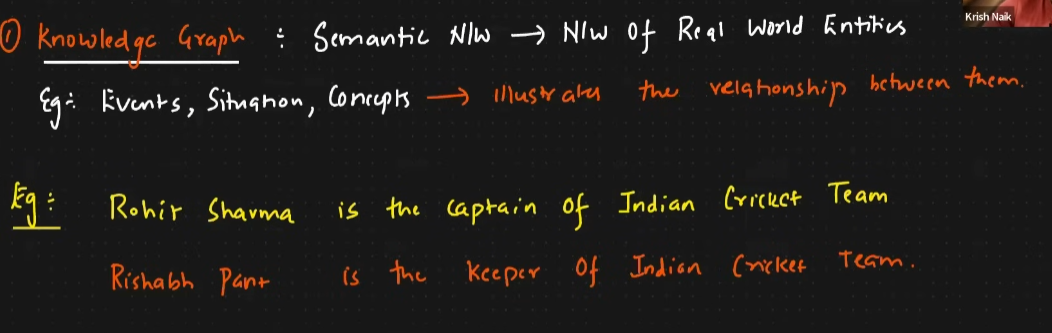 Krish Naik
① Knowledge Graph : Semantic N/w → N/w of Real World Entities
Eg: Events, Situation, Concepts → illustrates the relationship between them.
Eg: Rohit Sharma is the captain of Indian Cricket Team
Rishabh Pant is the keeper of Indian Cricket Team.